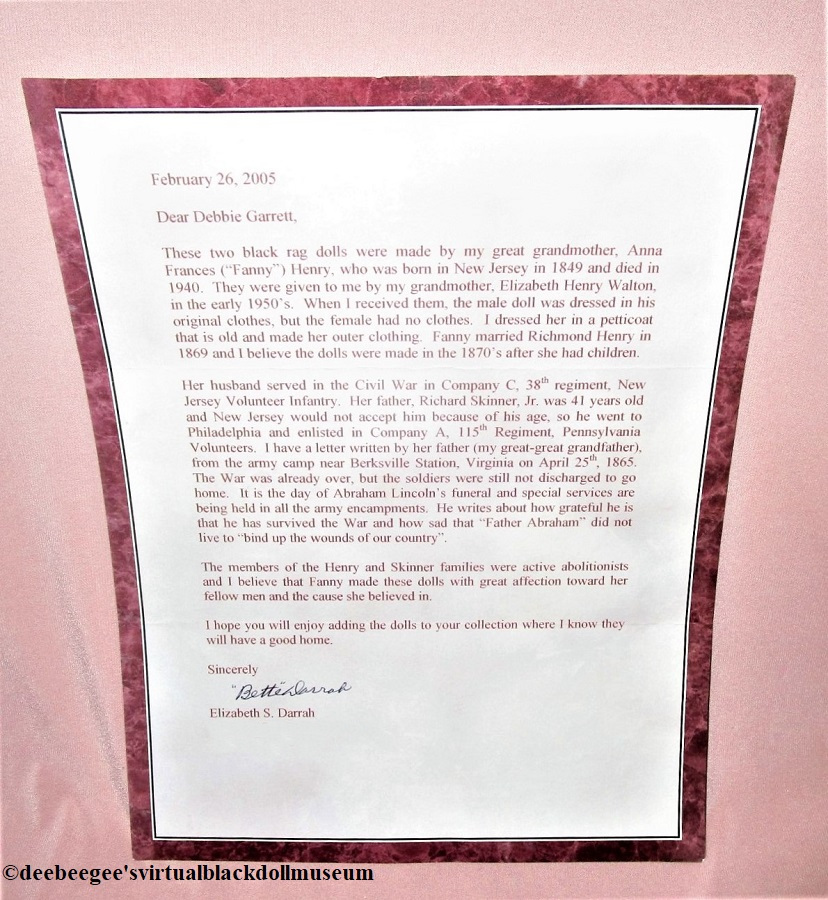 February 26, 2005
Dear Debbie Garrett,
These two black rag dolls were made by my great grandmother, Anna
Frances ("Fanny") Henry, who was born in New Jersey in 1849 and died in
1940. They were given to me by my grandmother, Elizabeth Henry Walton,
in the early 1950's. When I received them, the male doll was dressed in his
original clothes, but the female had no clothes. I dressed her in a petticoat
that is old and made her outer clothing. Fanny married Richmond Henry in
1869 and I believe the dolls were made in the 1870's after she had children.
Her husband served in the Civil War in Company C, 38th regiment, New
Jersey Volunteer Infantry. Her father, Richard Skinner, Jr. was 41 years old
and New Jersey would not accept him because of his age, so he went to
Philadelphia and enlisted in Company A, 115th Regiment, Pennsylvania
Volunteers. I have a letter written by her father (my great-great grandfather),
from the army camp near Berksville Station, Virginia on April 25th, 1865.
The War was already over, but the soldiers were still not discharged to go
home. It is the day of Abraham Lincoln's funeral and special services are
being held in all the army encampments. He writes about how grateful he is
that he has survived the War and how sad that "Father Abraham" did not
live to "bind up the wounds of our country".
The members of the Henry and Skinner families were active abolitionists
and I believe that Fanny made these dolls with great affection toward her
fellow men and the cause she believed in.
I hope you will enjoy adding the dolls to your collection where I know they
will have a good home.
Sincerely
"Bette" Darrah
Elizabeth S. Darrah
©deebeegee'svirtualblackdollmuseum